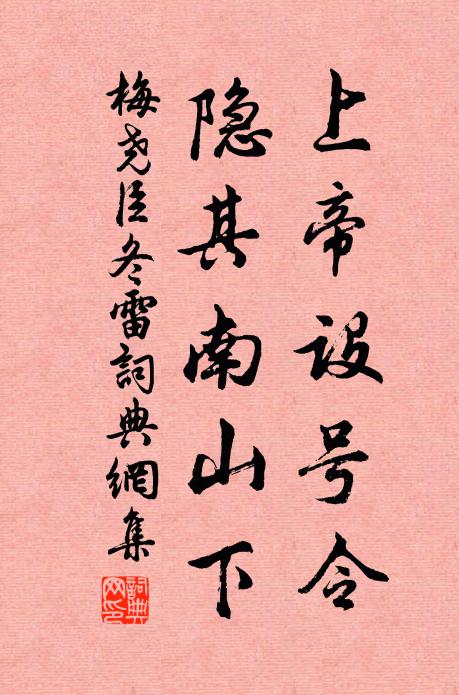 上帝设号令
隐其南山下
梅尧臣冬雷詞典網集
詞典网印